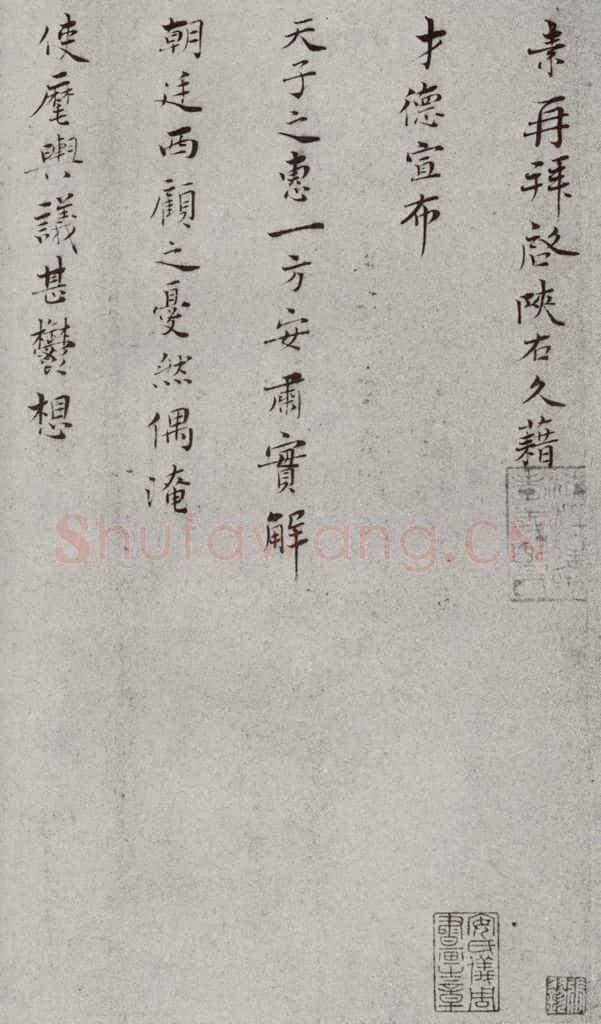 素再拜啟陝右久藉
才德宣布
天子之惠一方安肅實解
朝廷西顧之憂然偶淹
使麾輿議甚鬱想
Shufawang.CN
安氏儀周
書畫之章